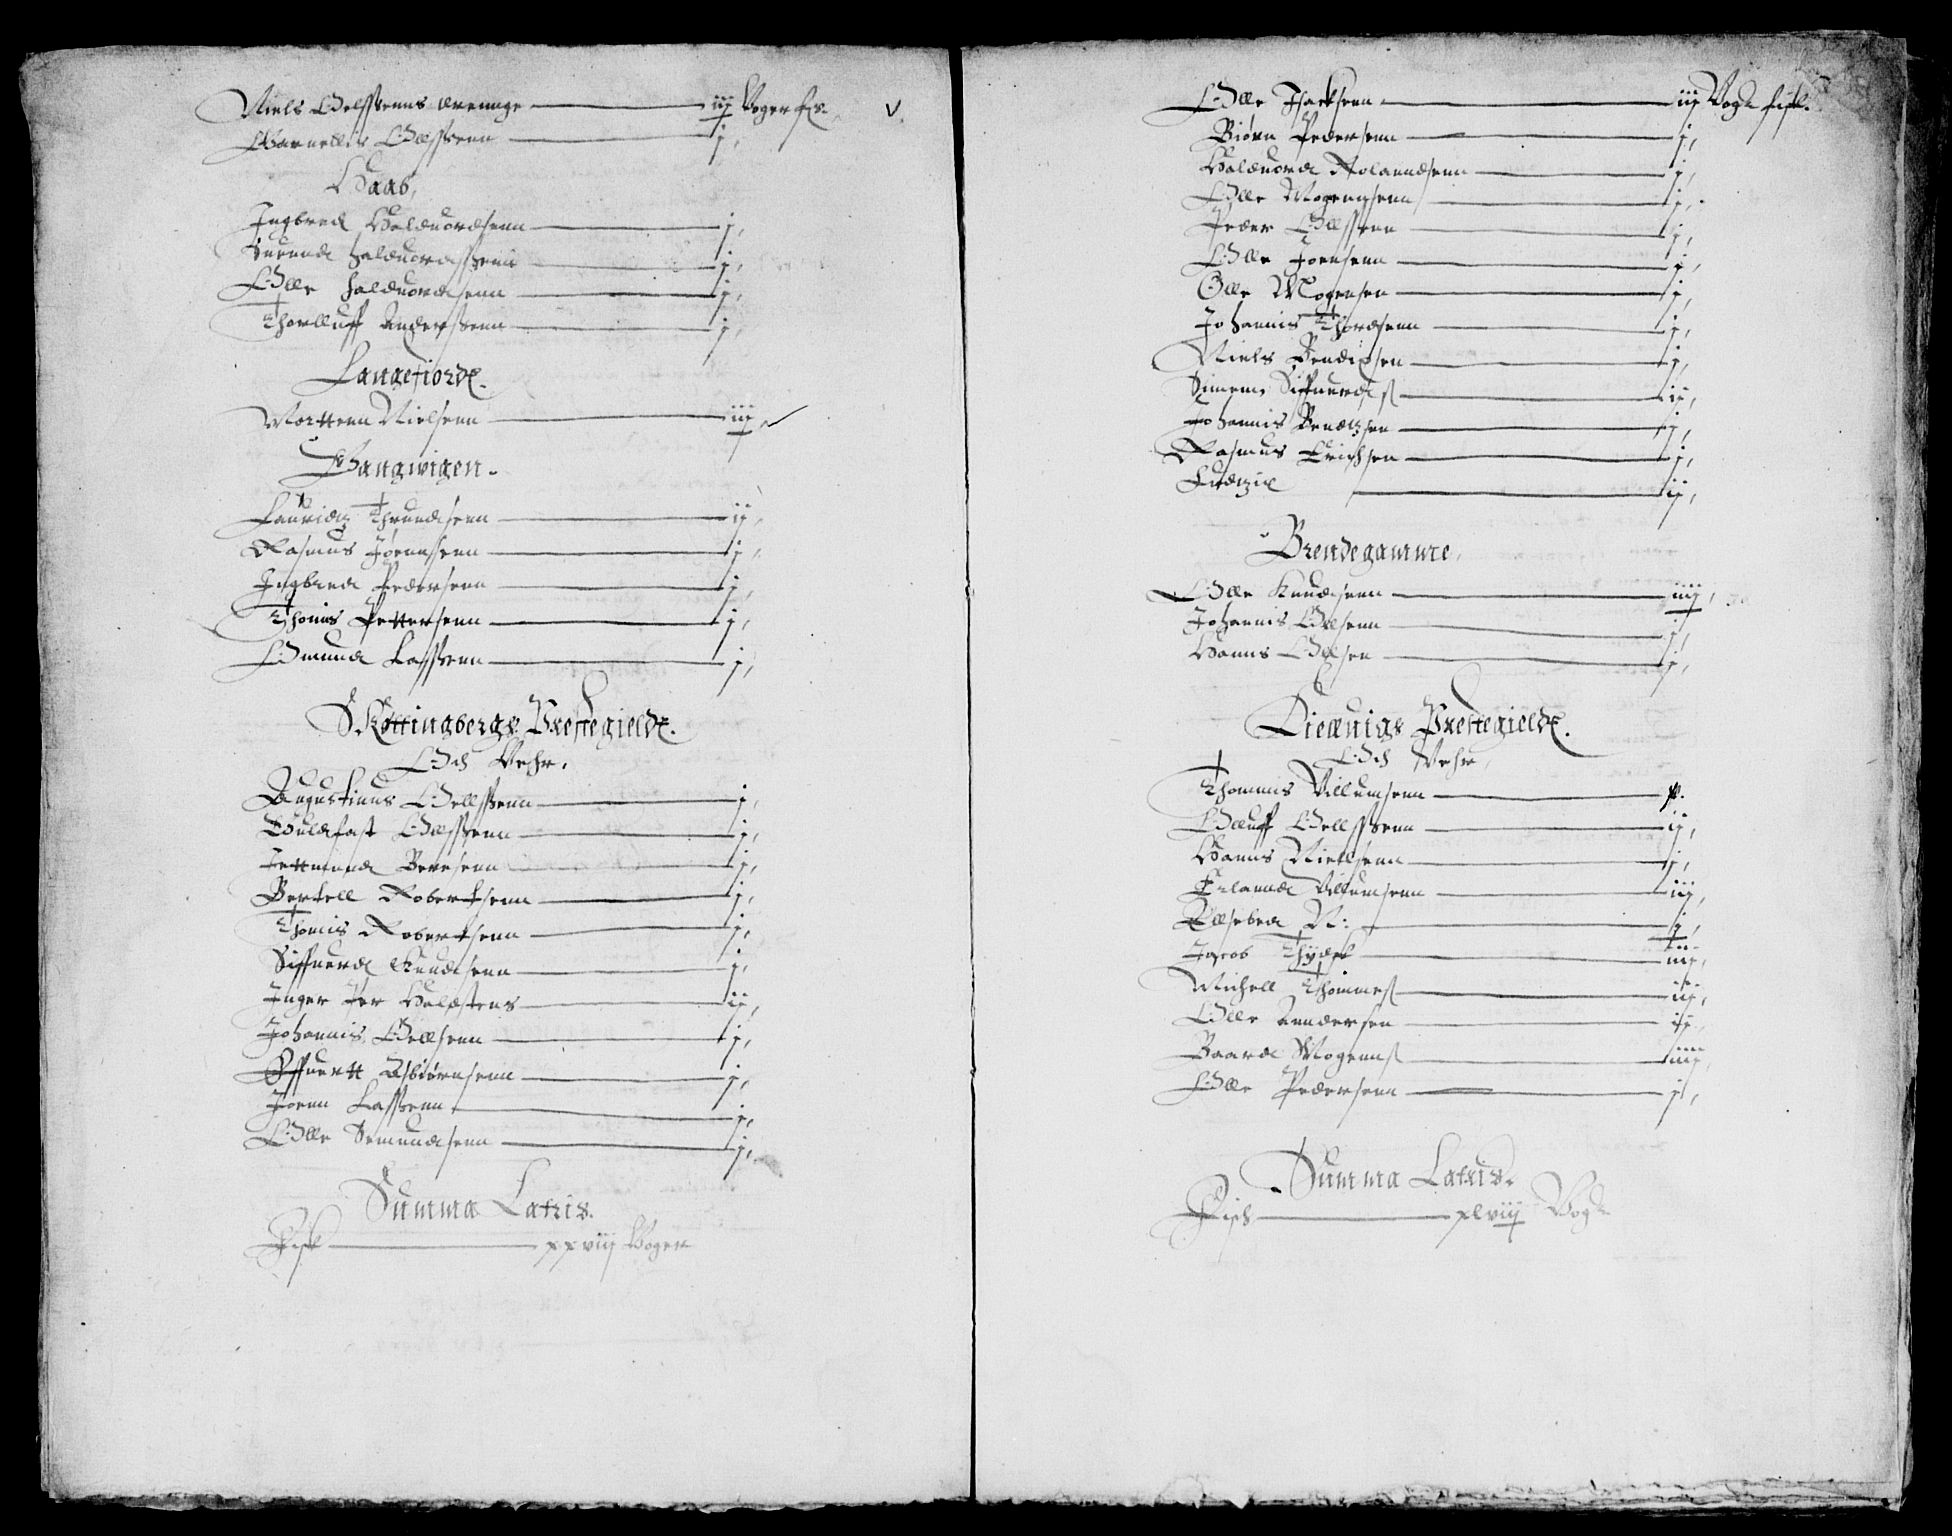 Niels Oelssenns Arennge — iij Voger fis. v.
Carnellis Oelssenn — j,
Haab,
Ingbred Halduordsenn — j,
Suennd Halduordssenn — j,
Olle Halduordsenn — j,
Thorlluff Anderssenn — j,
Langefiordt.
Mortenn Nielsenn — iij,
Gangwigen.
Lauridz Thrundsenn — ij,
Rasmus Joennsenn — j,
Ingbred Pedersenn — j,
Thomis Pettersenn — j,
Omund Lassenn — j,
Køttingbergs Prestegieldt.
Och Vehr.
Augustinus Oellssenn — j,
Guldfast Olssenn — j,
Jettmund Beresenn — j,
Bertell Robertsenn — j,
Thomis Robertsenn — j,
Siffuerd Knudsenn — j,
Inger Per Halstens — ij,
Johannis Oellsenn — j,
Effuertt Asbiørnsenn — j,
Joenn Lassenn — j,
Olle Semundsenn — j,
Summa Latris.
Fisk — xxviij Voger
Olle Isacksenn — iij Vogr fisk.
Biørn Pedersenn — j,
Halduord Rolanndsenn — j,
Olle Mogennsenn — j,
Peder Ollssenn — j,
Olle Joensenn — j,
Olle Mogensen — j,
Johannis Thordsenn — j,
Niels Bendixsen — j,
Simen Siffuerds — ij,
Johannis Bendzsen — j,
Rasmus Erichsen — j,
Ludzie — ij,
Brendegamme,
Olle Knudsenn — iiij,
Johannis Olsenn — j,
Hanns Ollsen — j,
Dieunigs Prestegieldt.
Och Vehr,
Thommis Villumsenn — v.
Oluff Oellssenn — ij,
Hanns Nielsenn — j,
Erlannd Villumsenn — iij,
Ellsebed N: — j,
Jacob Thydsk — iiij,
Michell Thommes — iij,
Olle Anndersen — ij,
Baard Mogenns — iiij,
Olle Pedersenn — j,
Summa Latris.
Fisch — xlviij Vogr